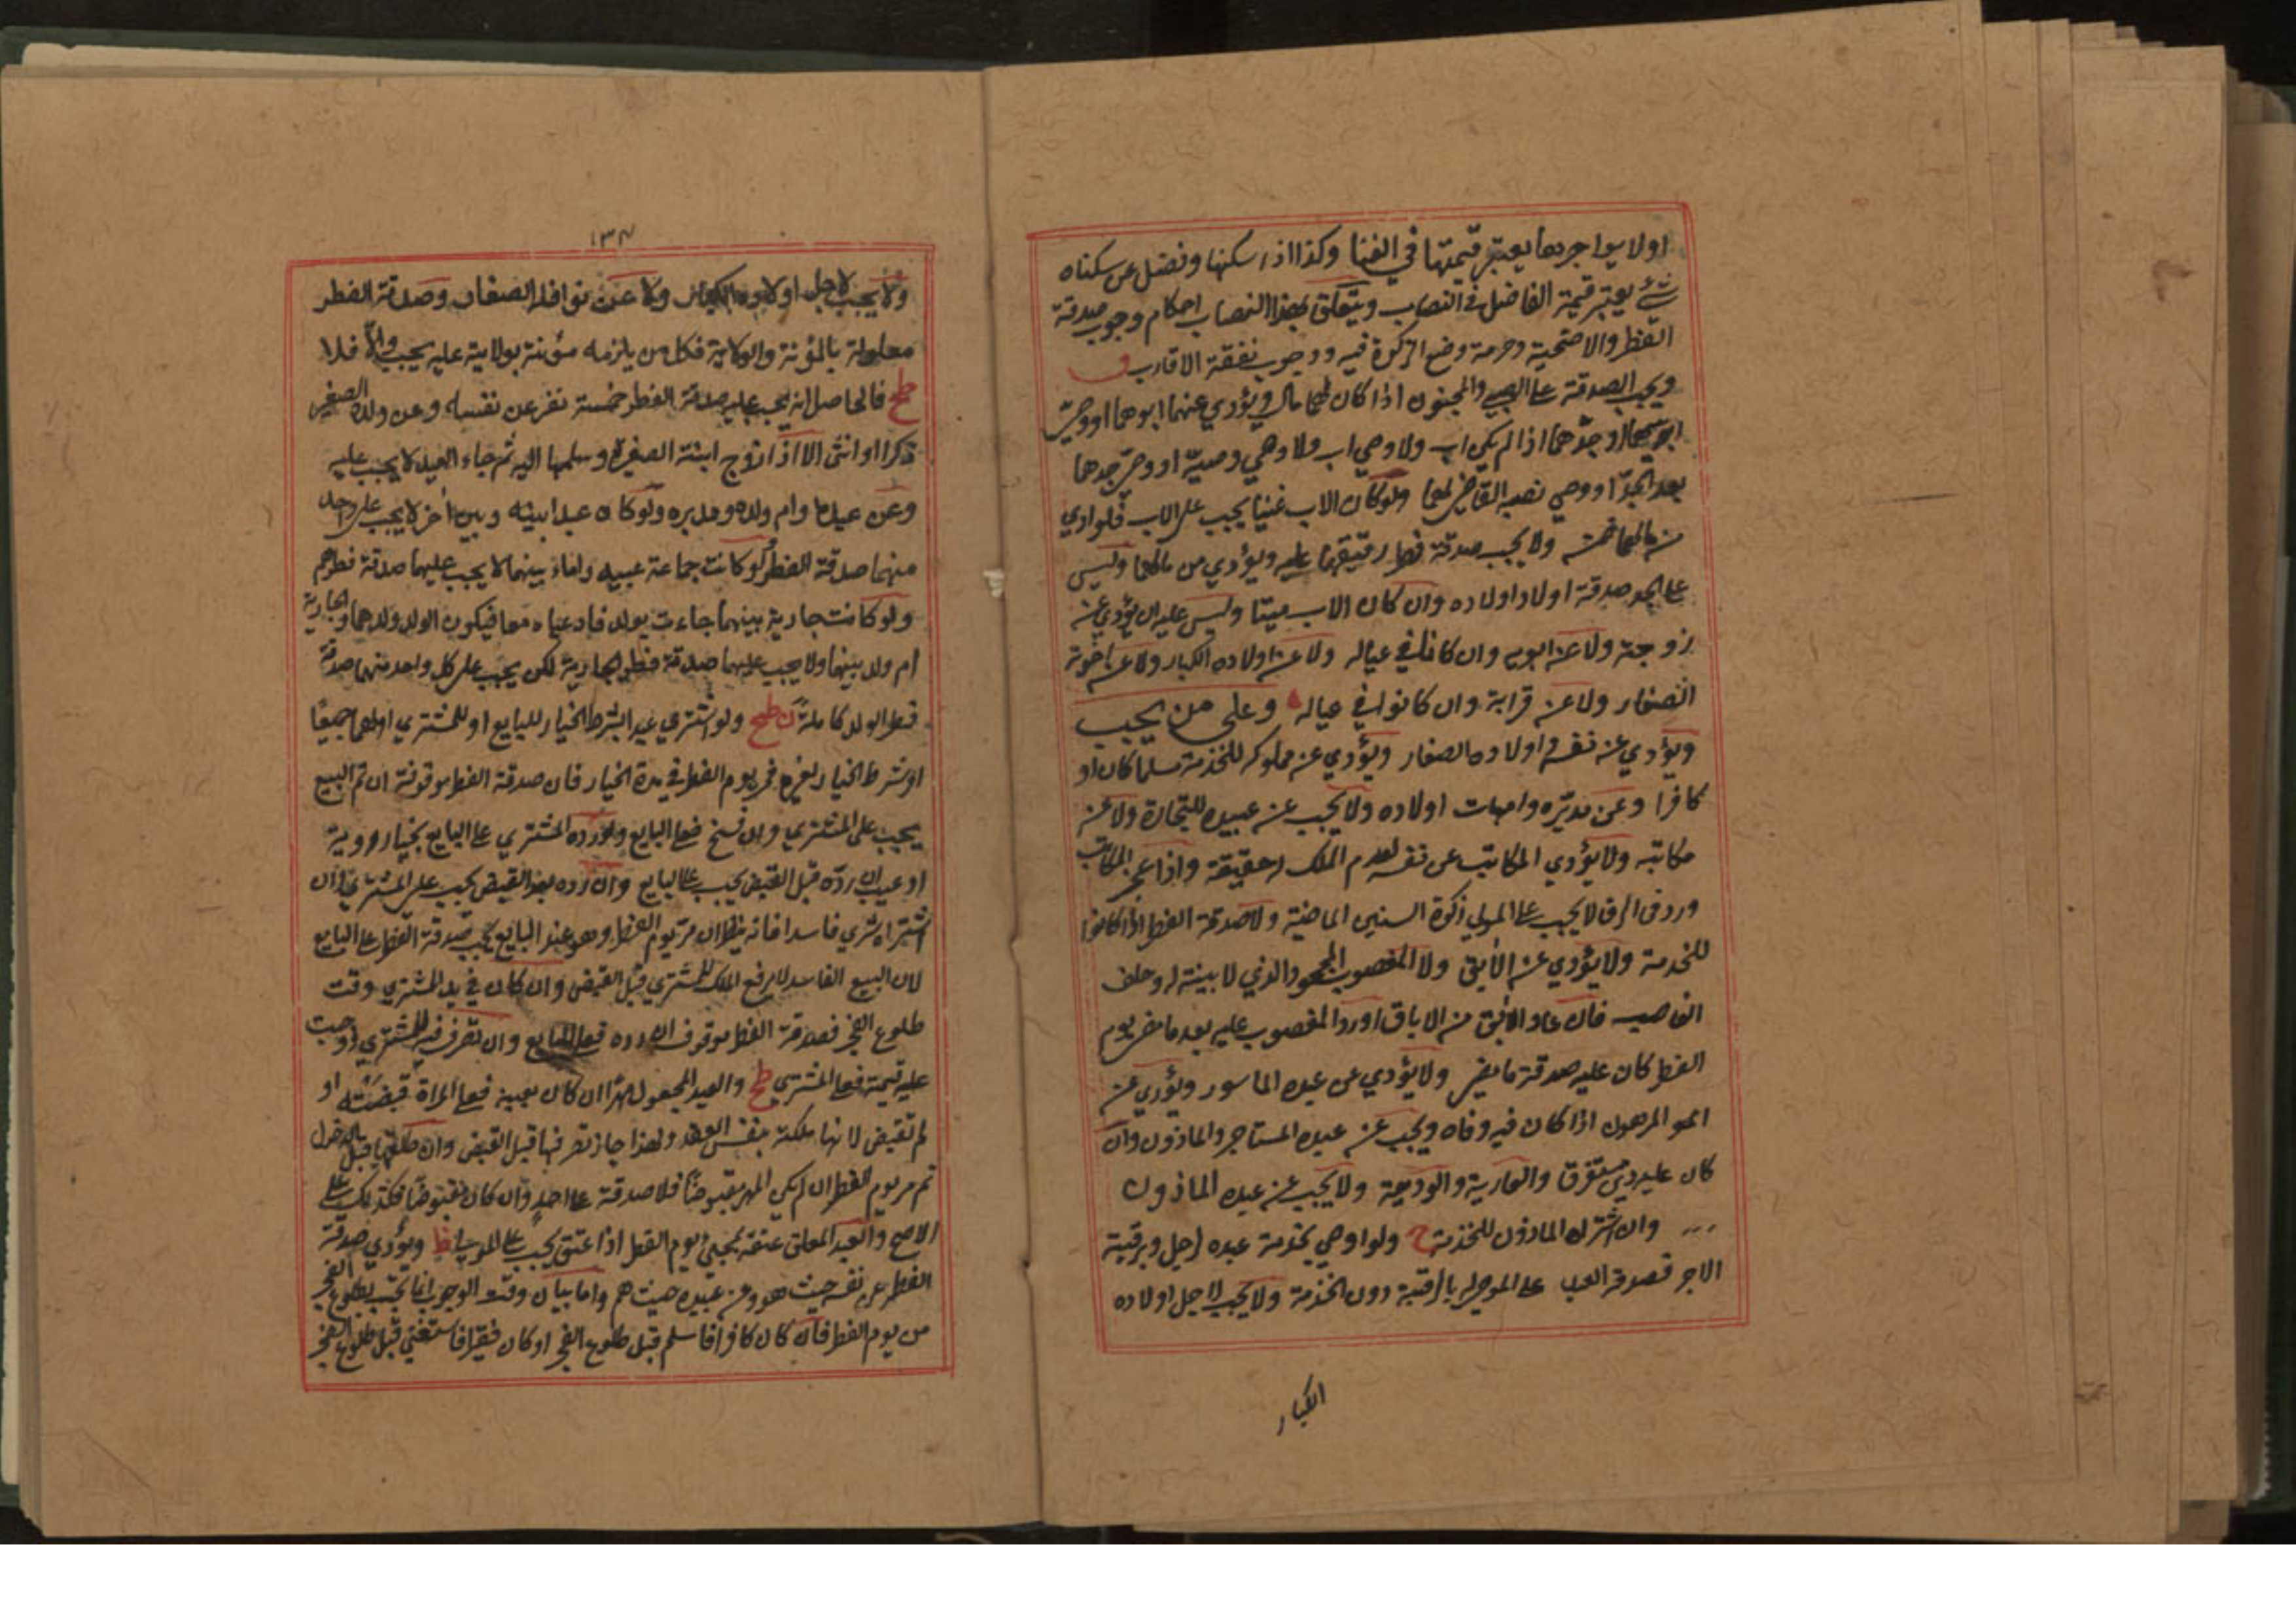 او لا يواجرها يعتبر قيمتها في الغنا وكذا اذا سكنها وفضل عن سكناه
شئ يعتبر قيمة الفاضل في النصاب ويتعلق بهذا النصاب احكام وجوب صدقة
الفطر والاضحية وحرمة وضع الزكوة فيه ووجوب نفقة الاقارب
ويجب الصدقة على الصبي والمجنون اذا كان لهما مال ويؤدي عنهما ابوهما او وصي
ابيهما او جدهما اذا لم يكن اب ولا وصي اب ولا وصي وصيه او وصي جدهما
بعد الجد او وصي نصبه القاضي لهما ولو كان الاب غنيا يجب على الاب فلو ادي
من مالهما ضمن ولا يجب صدقة فطر رقيقهما عليه ويؤدي من مالهما وليس
على الجد صدقة اولاد اولاده وان كان الاب ميتا وليس عليه ان يؤدي عن
زوجته ولا عن ابويه وان كانا في عياله ولا عن اولاده الكبار ولا عن اخوته
الصغار ولا عن قرابة وان كانوا في عياله وعلى من يجب
ويؤدي عن نفسه واولاده الصغار ويؤدي عن مملوكه للخدمة مسلما كان او
كافرا وعن مدبره وامهات اولاده ولا يجب عن عبيده للتجارة ولا عن
مكاتبه ولا يؤدي المكاتب عن نفسه لعدم الملك له حقيقة واذا عجز المكاتب
ورد في الرق لا يجب على المولي زكوة السنين الماضية ولا صدقة الفطر اذا كانوا
للخدمة ولا يؤدي عن الآبق ولا المغصوب المجحود الذي لا بينة له وحلف
الغاصب فان عاد الآبق من الاباق او رد المغصوب عليه بعد ما مضى يوم
الفطر كان عليه صدقة ما مضى ولا يؤدي عن عبده الماسور ويؤدي عن
العبد المرهون اذا كان فيه وفاء ويجب عن عبده المستاجر والماذون وان
كان عليه دين مستغرق والعارية والوديعة ولا يجب عن عبده الماذون
وان اشتراه الماذون للخدمة ولو اوصي بخدمة عبده لرجل وبرقبته
لاخر فصدقة العبد على الموصى له بالرقبة دون الخدمة ولا يجب لاجل اولاده
الكبار
١٣٨
ولا يجب لاجل اولاده الكبار ولا عن نوافله الصغار وصدقة الفطر
معلولة بالمؤنة والولاية فكل من يلزمه مؤنته بولايته عليه يجب والا فلا
طح فالحاصل انه يجب عليه صدقة الفطر خمسة نفر عن نفسه وعن ولده الصغير
ذكرا او انثى الا اذا زوج ابنته الصغيرة وسلمها اليه ثم جاء العيد لا يجب عليه
وعن عبيده وام ولده ومدبره ولو كان عبدا بينه وبين آخر لا يجب على واحد
منهما صدقة الفطر ولو كانت جماعة عبيد واماء بينهما لا يجب عليهما صدقة فطرهم
ولو كانت جارية بينهما جاءت بولد فادعياه معا فيكون الولد ولدهما والجارية
ام ولد بينهما ولا يجب عليهما صدقة فطر الجارية لكن يجب على كل واحد منهما صدقة
فطر الولد كاملة طح ولو اشتري عبدا بشرط الخيار للبايع او للمشتري او لهما جميعا
او شرط الخيار لغيره فمر يوم الفطر في مدة الخيار فان صدقة الفطر موقوفة ان تم البيع
يجب على المشتري وان فسخ فعلى البايع ولو رده المشتري على البايع بخيار روية
او عيب ان رده قبل القبض يجب على البايع وان رده بعد القبض يجب على المشتري وان
اشتراه شري فاسدا فانه ينظر ان مر يوم الفطر وهو عند البايع يجب صدقة الفطر على البايع
لان البيع الفاسد لا يرفع الملك للمشتري قبل القبض وان كان في يد المشتري وقت
طلوع الفجر فصدقة الفطر موقوف ان رده فعلى البايع وان تصرف فيه المشتري او وجبت
عليه قيمته فعلى المشتري طح والعبد المجعول مهرا ان كان بعينه فعلى المراة قبضته او
لم تقبض لانها ملكته بنفس العقد ولهذا جاز تصرفها قبل القبض وان طلقها قبل الدخول
ثم مر يوم الفطر ان لم يكن المهر مقبوضا فلا صدقة على احد وان كان مقبوضا فكذلك على
الاصح والعبد المعلق عتقه بمجئ يوم الفطر اذا عتق يجب على المولى ويؤدي صدقة
الفطر عن نفسه حيث هو وعن عبيده حيث هم واما بيان وقت الوجوب انما يجب بطلوع الفجر
من يوم الفطر فان كان كافرا فاسلم قبل طلوع الفجر او كان فقيرا فاستغنى قبل طلوع الفجر